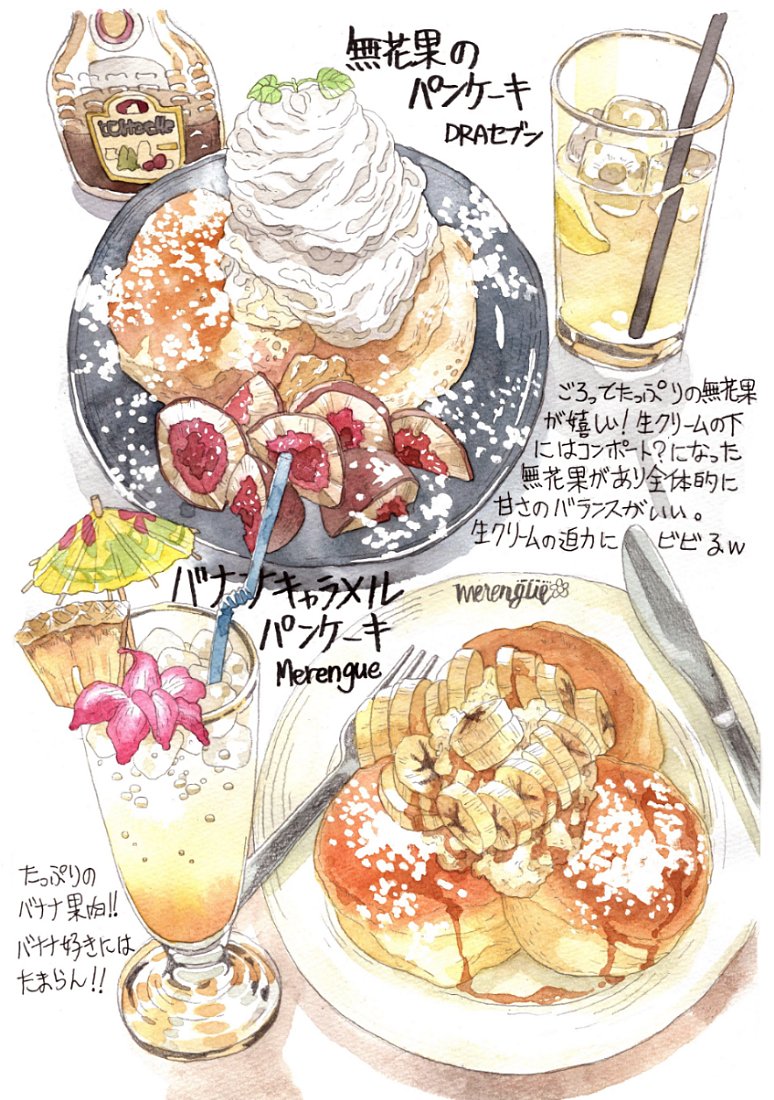 無花果の
パンケーキ
DRAセブン
ごろってたっぷりの無花果
が嬉しい！生クリームの下
にはコンポート？になった
無花果があり全体的に
甘さのバランスがいい。
生クリームの迫力に ビビるw
バナナキャラメル
パンケーキ
Merengue
merengue
たっぷりの
バナナ果肉!!
バナナ好きには
たまらん!!